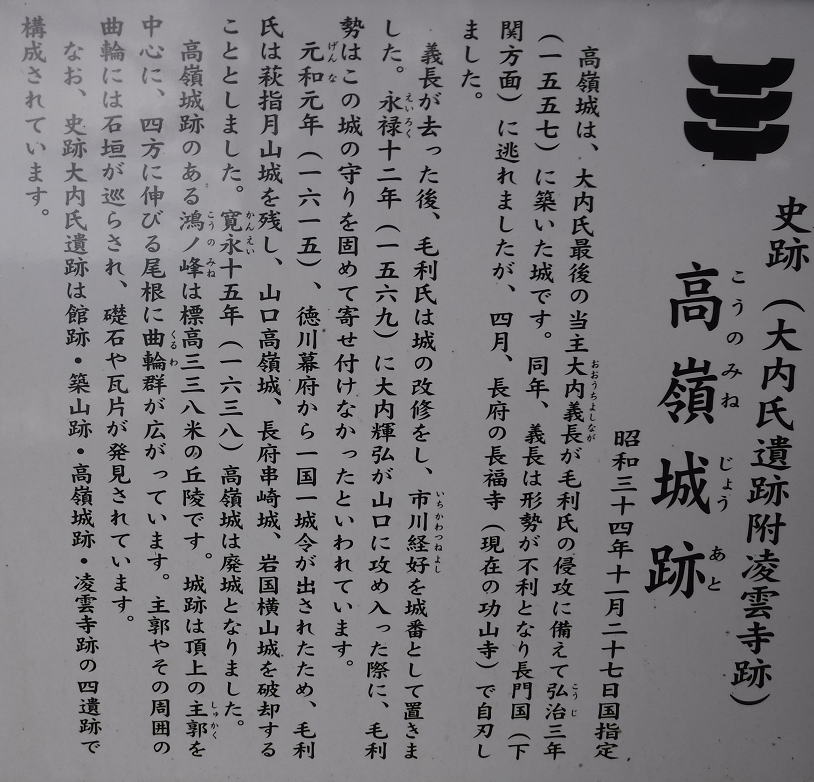 史跡（大内氏遺跡附凌雲寺跡）
高嶺城跡
こうのみねじょうあと
昭和三十四年十一月二十七日国指定
高嶺城は、大内氏最後の当主大内義長が毛利氏の侵攻に備えて弘治三年
おおうちよしなが
こうじ
（一五五七）に築いた城です。同年、義長は形勢が不利となり長門国（下
関方面）に逃れましたが、四月、長府の長福寺（現在の功山寺）で自刃し
ました。
義長が去った後、毛利氏は城の改修をし、市川経好を城番として置きま
いちかわつねよし
した。永禄十二年（一五六九）に大内輝弘が山口に攻め入った際に、毛利
えいろく
勢はこの城の守りを固めて寄せ付けなかったといわれています。
元和元年（一六一五）、徳川幕府から一国一城令が出されたため、毛利
げんな
氏は萩指月山城を残し、山口高嶺城、長府串崎城、岩国横山城を破却する
こととしました。寛永十五年（一六三八）高嶺城は廃城となりました。
かんえい
高嶺城跡のある鴻ノ峰は標高三三八米の丘陵です。城跡は頂上の主郭を
こうのみね
しゅかく
中心に、四方に伸びる尾根に曲輪群が広がっています。主郭やその周囲の
くるわ
曲輪には石垣が巡らされ、礎石や瓦片が発見されています。
なお、史跡大内氏遺跡は館跡・築山跡・高嶺城跡・凌雲寺跡の四遺跡で
構成されています。